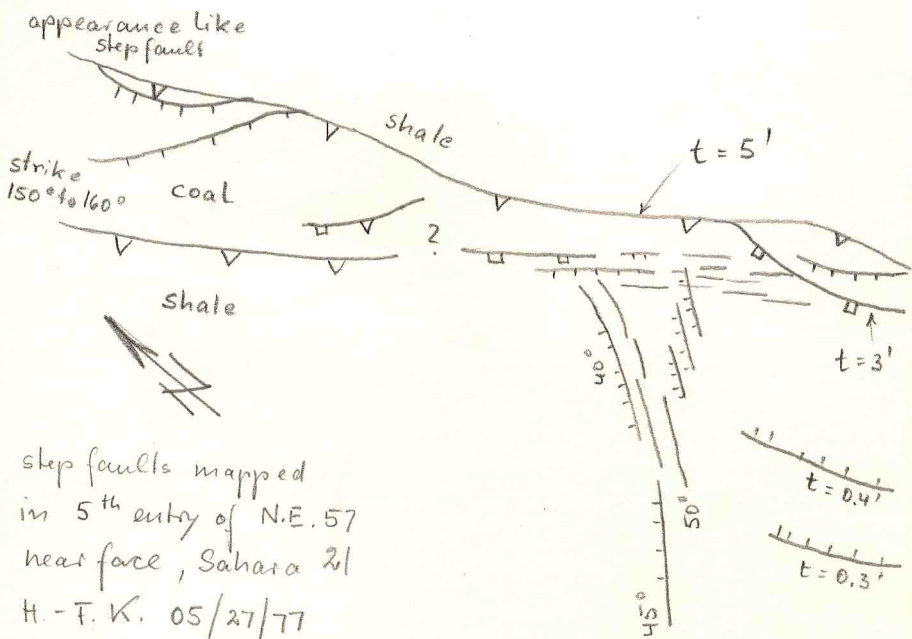 appearance like
step fault
shale
t = 5'
strike
150° to 160°
coal
?
shale
40°
t = 3'
50°
t = 0.4'
t = 0.3'
45°
step faults mapped
in 5th entry of N.E. 57
near face, Sahara 21
H.-F. K. 05/27/77